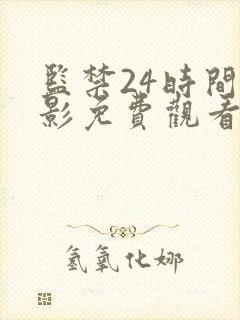 監禁24時間
影免費觀看
氢氧化娜